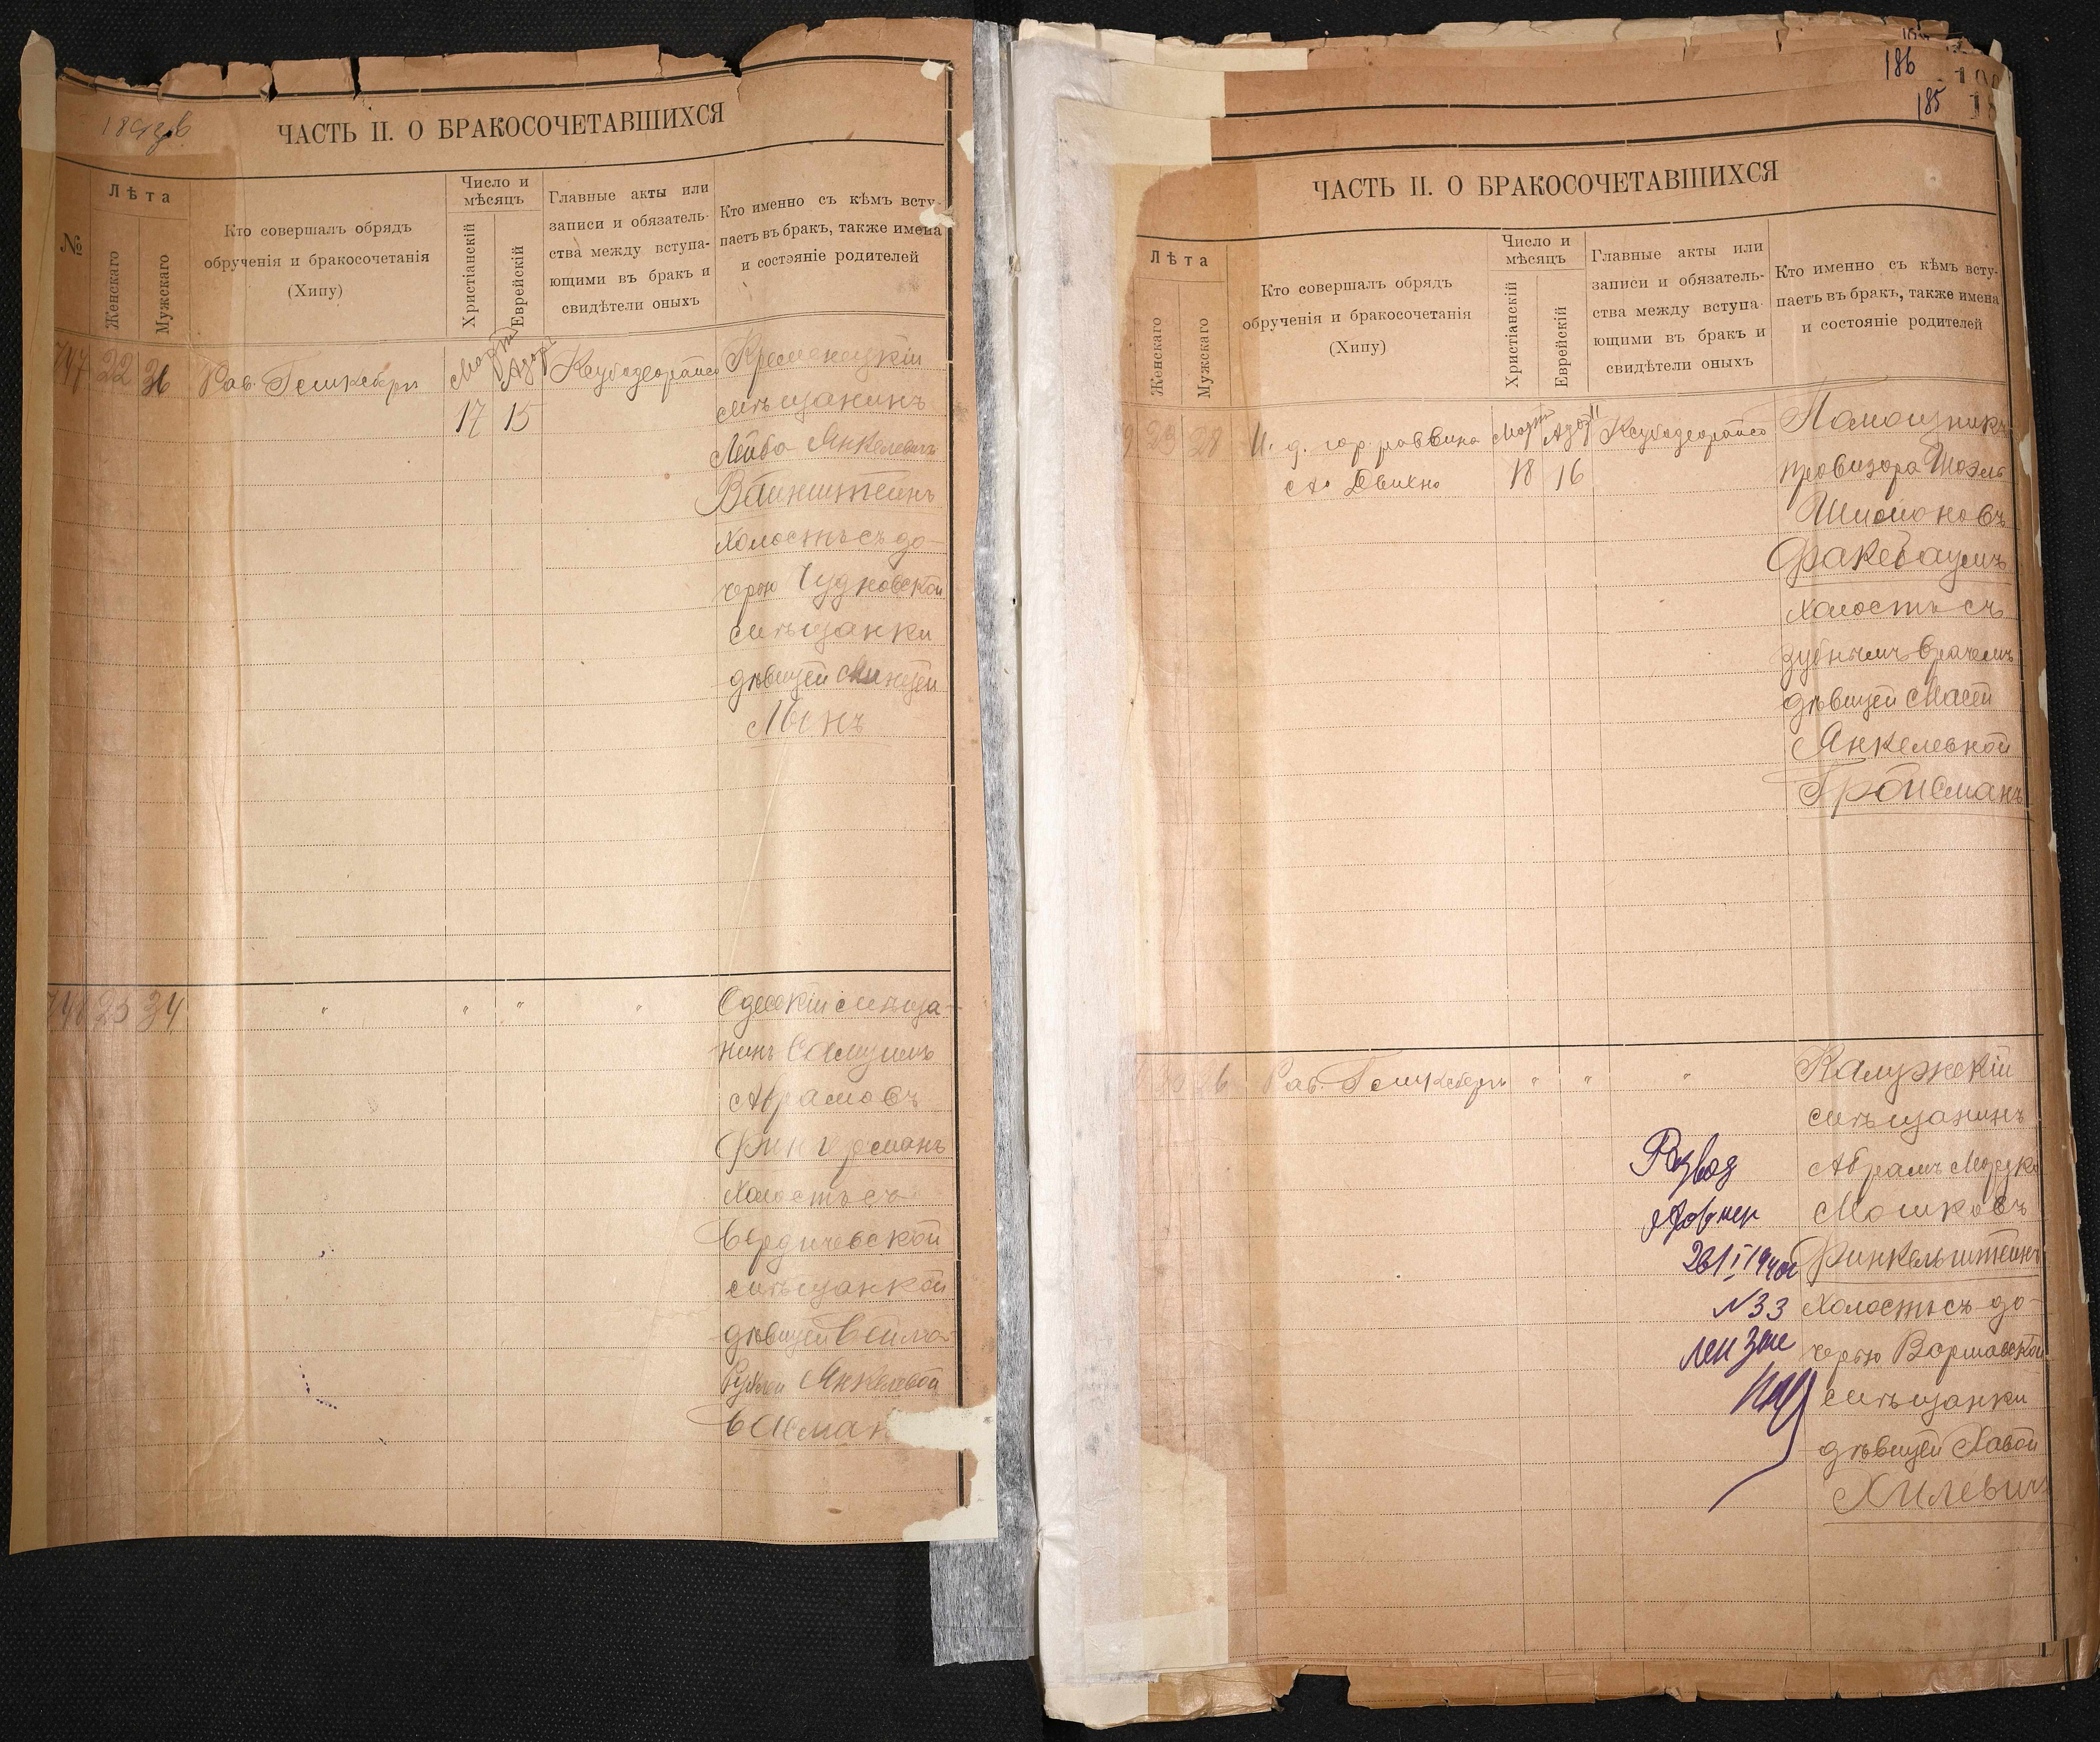 ЧАСТЬ II. О БРАКОСОЧЕТАВШИХСЯ
№
Лѣта
Женскаго
Мужскаго
Кто совершалъ обрядъ
обрученія и бракосочетанія
(Хипу)
Число и
мѣсяцъ
Христіанскій
Еврейскій
Главные акты или
записи и обязатель-
ства между вступа-
ющими въ бракъ и
свидѣтели оныхъ
Кто именно съ кѣмъ всту-
паетъ въ бракъ, также имена
и состояніе родителей
747 22 36 Рав.
Мартъ
17 15
Кременецкій
мѣщанинъ
Лейба Янкелевъ
Вайнштейнъ
холостъ съ до-
черью Чудновской
мѣщанки
дѣвицей
748 23 34 " " " "
Одесскій мѣща-
нинъ Самуилъ
Абрамовъ
Фингерманъ
холостъ съ
Бердичевской
мѣщанкой
дѣвицей Бейлой
Рухлей Янкелевой
186
185
ЧАСТЬ II. О БРАКОСОЧЕТАВШИХСЯ
Лѣта
Женскаго
Мужскаго
Кто совершалъ обрядъ
обрученія и бракосочетанія
(Хипу)
Число и
мѣсяцъ
Христіанскій
Еврейскій
Главные акты или
записи и обязатель-
ства между вступа-
ющими въ бракъ и
свидѣтели оныхъ
Кто именно съ кѣмъ всту-
паетъ въ бракъ, также имена
и состояніе родителей
23 28 И. д. гор. раввина
Мартъ
18 16
Помощникъ
провизора
Шимоновъ
холостъ съ
зубнымъ врачемъ
дѣвицей Масей
Янкелевной
Гройсманъ
26 Рав. " " "
Калужскій
мѣщанинъ
Абрамъ Мордко
Мошковъ
Финкельштейнъ
холостъ съ до-
черью Варшавской
мѣщанки
дѣвицей Хавой
Хилевичъ
Развод
№33